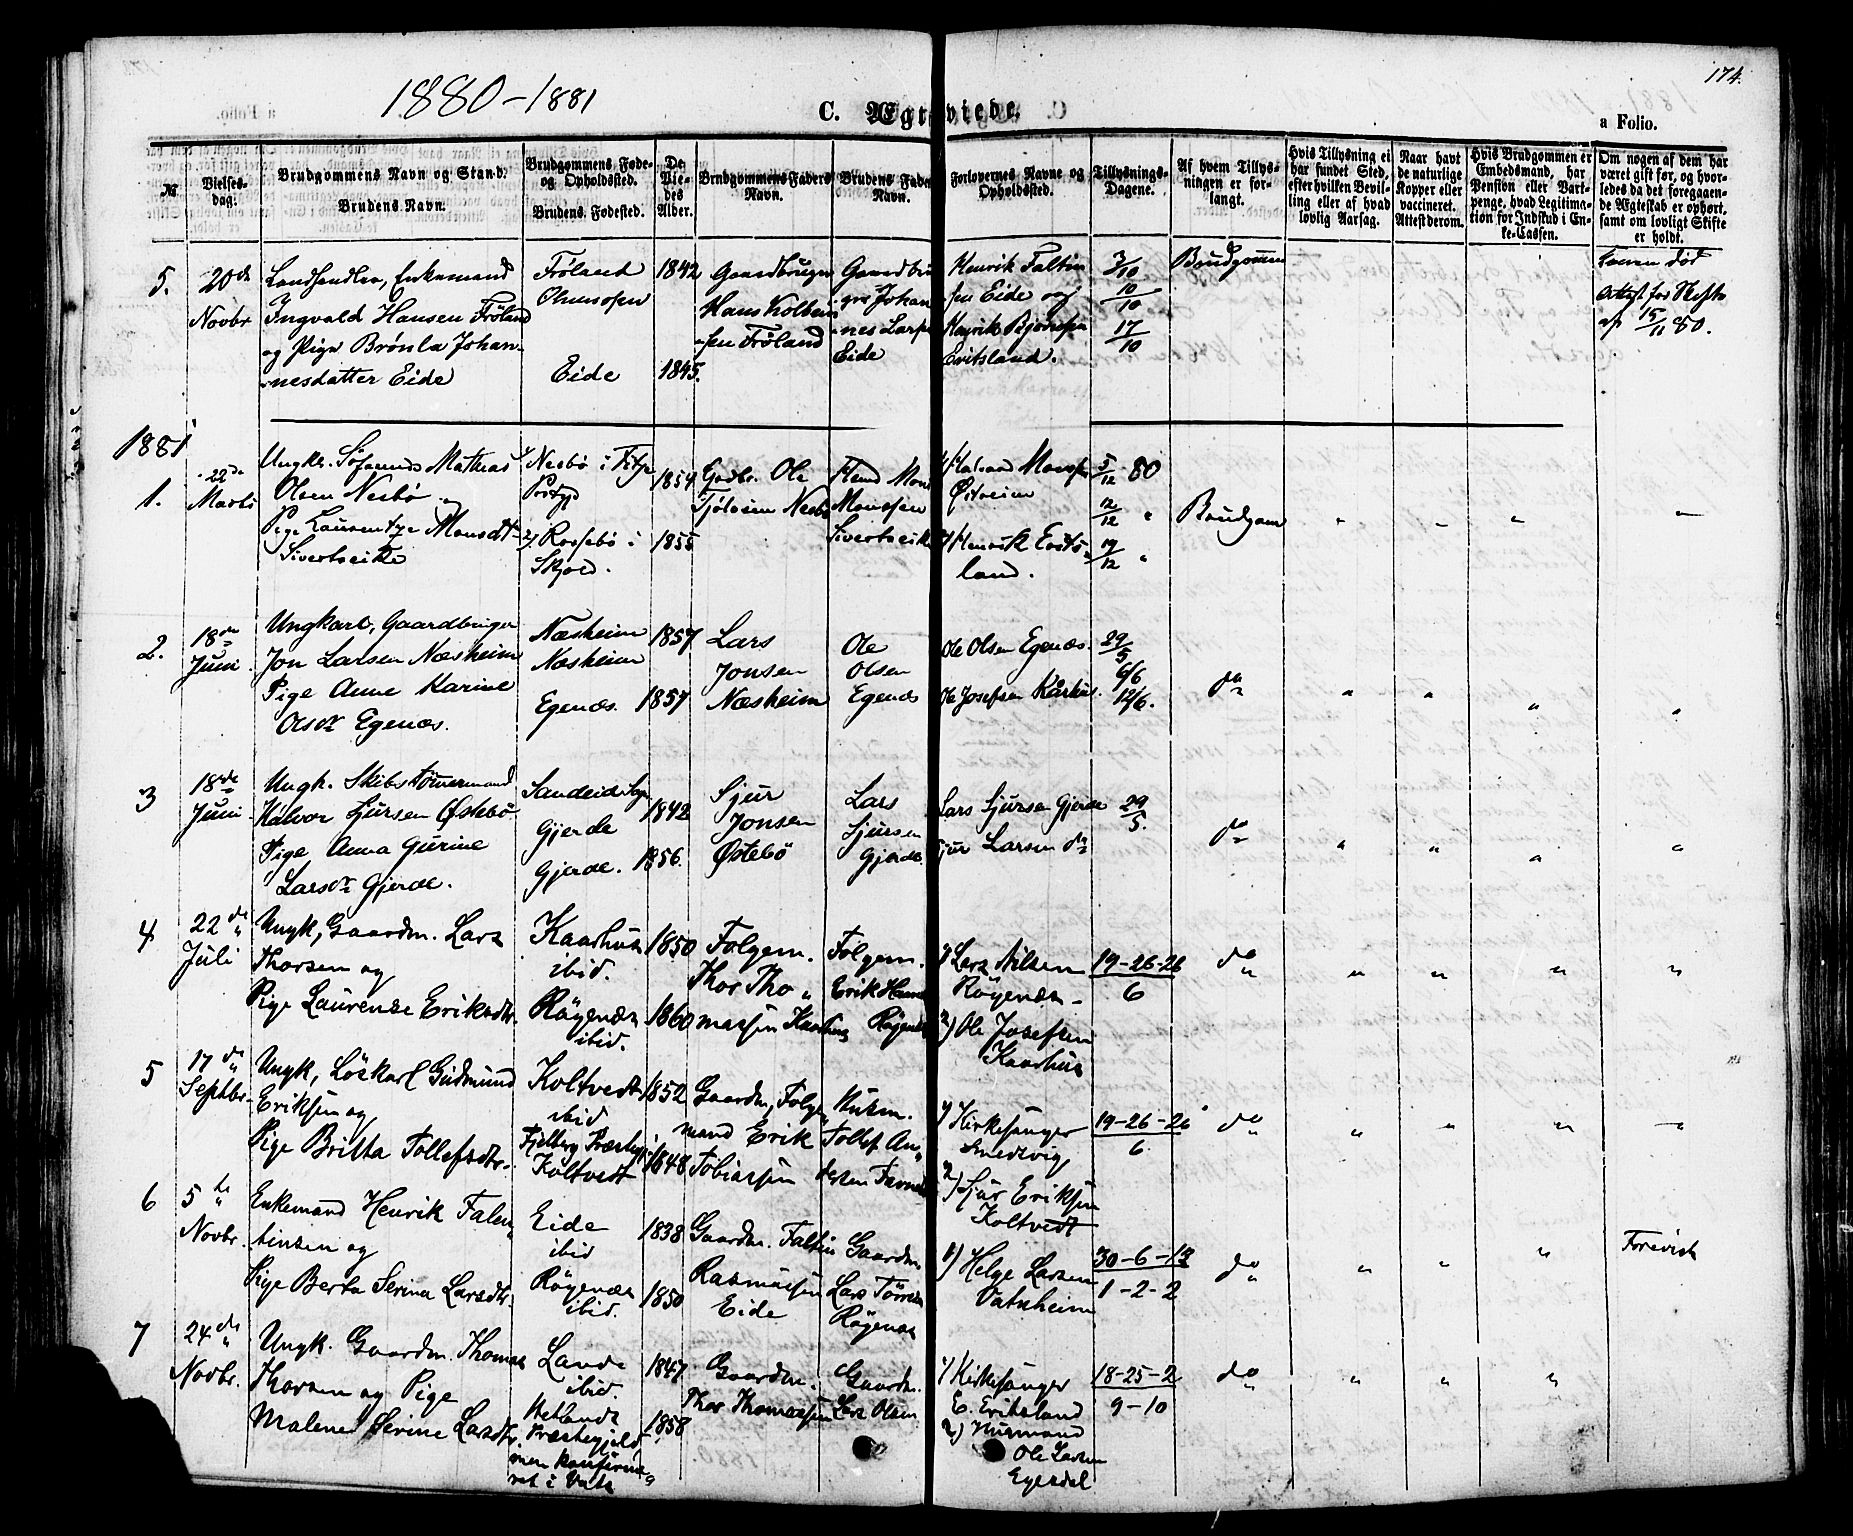 174.
1880-1881
C. Ægteviede.
a Folio.
№
Vielses-
dag.
Brudgommens Navn og Stand.
Brudens Navn.
Brudgommens Føde-
og Opholdssted.
Brudens Fødested.
De
Vie-
des
Alder.
Brudgommens Faders
Navn.
Brudens Faders
Navn.
Forlovernes Navne og
Opholdssted.
Tillysnings-
Dagene.
Af hvem Tillys-
ningen er for-
langt.
Hvis Tillysning ei
har fundet Sted,
efter hvilken Bevil-
ling eller af hvad
lovlig Aarsag.
Naar havt
de naturlige
Kopper eller
vaccineret.
Attest derom.
Hvis Brudgommen er
Embedsmand, har
Pension eller Vart-
penge, hvad Legitima-
tion for Indskud i En-
ke-Cassen.
Om nogen af dem har
været gift før, og hvor-
ledes da det foregaaen-
de Ægteskab er ophørt,
samt om lovligt Skifte
er holdt.
5.
20de
Novbr
Landhandler, Enkemand
Ingvald Hansen Frøland
og Pige Brønla Johan-
nesdatter Eide
Frøland
Eide
1842
1845.
Gaardbruger
Hans Kolbein-
sen Frøland
Gaardbru-
ger Johan-
nes Larsen
Eide
Henrik Faltin
sen Eide og
Henrik Bjørnsen
Eritsland.
3/10
10/10
17/10
Brudgommen
Konen død
Attest for Skifte
af 15/11 80.
1881
1.
22de
Marts
Ungkr. Mathias
Olsen Nesbø og
Pige Laurentze Monsdt
Sivertsvike
1) Nesbø i
2) Rossebø i
Skjold.
1854
1855
Gadbr. Ole
Nesbø
Monsen
Sivertsvike
Østreim
2) Henrik Erits-
land.
5/12 80
12/12 "
19/12 "
Brudgom
2.
18de
Juni
Ungkarl, Gaardbruger
Jon Larsen Næsheim
Pige Anne Karine
Olsdr Egenæs.
Næsheim
Næsheim
Egenæs.
1857
1857
Lars
Jonsen
Næsheim
Ole
Olsen
Egenæs
Ole Olsen Egenæs.
Ole Josefsen Kårhus.
29/5
6/6
12/6.
do
3
18de
Juni
Ungk. Skibstømmermand
Halvor Sjursen Østebø
Pige Anna Gurine
Larsdr Gjerde.
Sandeid Sogn
Gjerde
Gjerde.
1842
1856.
Sjur
Jonsen
Østebø
Lars
Sjursen
Gjerde.
Lars Sjursen Gjerde
Sjur Larsen do
29/5.
do
4
22de
Juli
Ungk, Gaardm. Lars
Thorsen og
Pige Laurense Eriksdtr.
Kaarhus
ibid.
Røgenæs
ibid.
1850
1860
Folgem.
Thor Tho-
massen Kaarhus
Folgem.
Erik
Røgenæs
1) Lars Nilsen
Røgenæs -
2) Ole Josefsen
Kaarhus
19-26-26
6
do
5
17de
Septbr.
Ungk, Løskarl Gudmund
Eriksen og
Pige Britta Tollefsdtr.
Koltvedt
ibid
Fjelberg Præstegj.
Koltvedt
1852
1848
Gaardm, Folge-
mand Erik
Tobiassen
Husm.
Tollef An-
dersen
1) Kirkesanger
Smedsvig
2) Sjur Eriksen
Koltvedt
19-26-26
6
do
6
5te
Novbr.
Enkemand Henrik Falen-
tinsen og
Pige Berta Serina Larsdtr.
Eide
ibid
Røgenæs
ibid.
1838
1850
Gaardm. Faltin
Rasmussen
Eide
Gaardm.
Lars Tørresen
Røgenæs
1) Helge Larsen
Vatnheim
30-6-13
1-2-2
do
Forevist
7
24de
Novbr.
Ungk. Gaardm. Thomas
Thorsen og Pige
Malene Serine Larsdtr.
Lande
ibid.
Hetlands
Præstegjeld
men konfirme-
ret i Vats
1847
1858
Gaardm.
Thor Thomassen
Gaardm.
Lars Olsen
1) Kirkesanger
E. Eritsland
2) Husmand
Ole Larsen
Egesdal
18-25-2
9-10
do